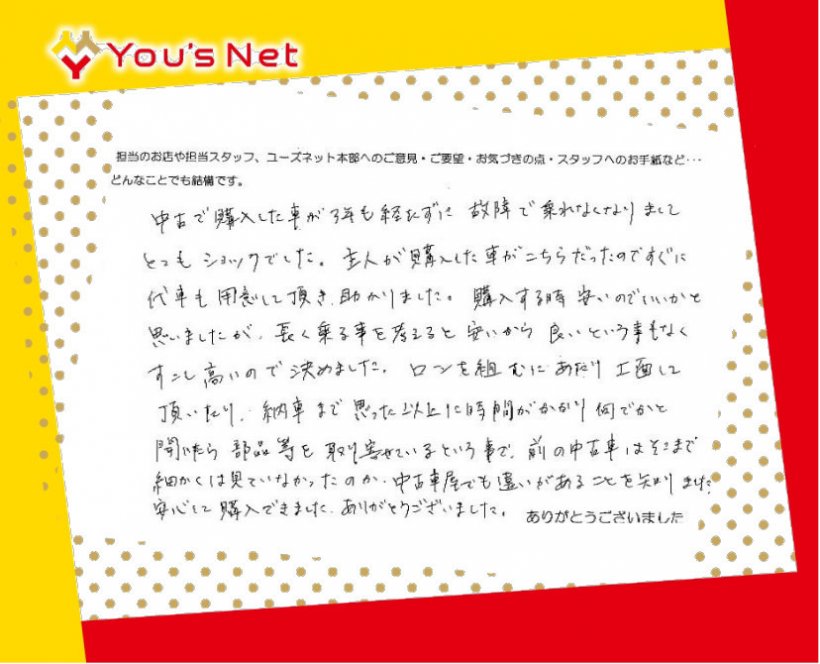 You's Net
担当のお店や担当スタッフ、ユーズネット本部へのご意見・ご要望・お気づきの点・スタッフへのお手紙など・・・
どんなことでも結構です。
中古で購入した車が3年も経たずに 故障で乗れなくなりまして
とてもショックでした。主人が購入した車がこちらだったのですぐに
代車も用意して頂き、助かりました。購入する時 安いのでいいかと
思いましたが、長く乗る事を考えると 安いから 良いという事もなく
すこし高いので決めました。ローンを組むにあたり 工面して
頂いたり、納車まで思った以上に時間がかかり 何でかと
聞いたら 部品等を取り寄せているという事で、前の中古車はそこまで
細かくは見ていなかったのか、中古車屋でも違いがあることを知りました。
安心して購入できました。ありがとうございました。
ありがとうございました